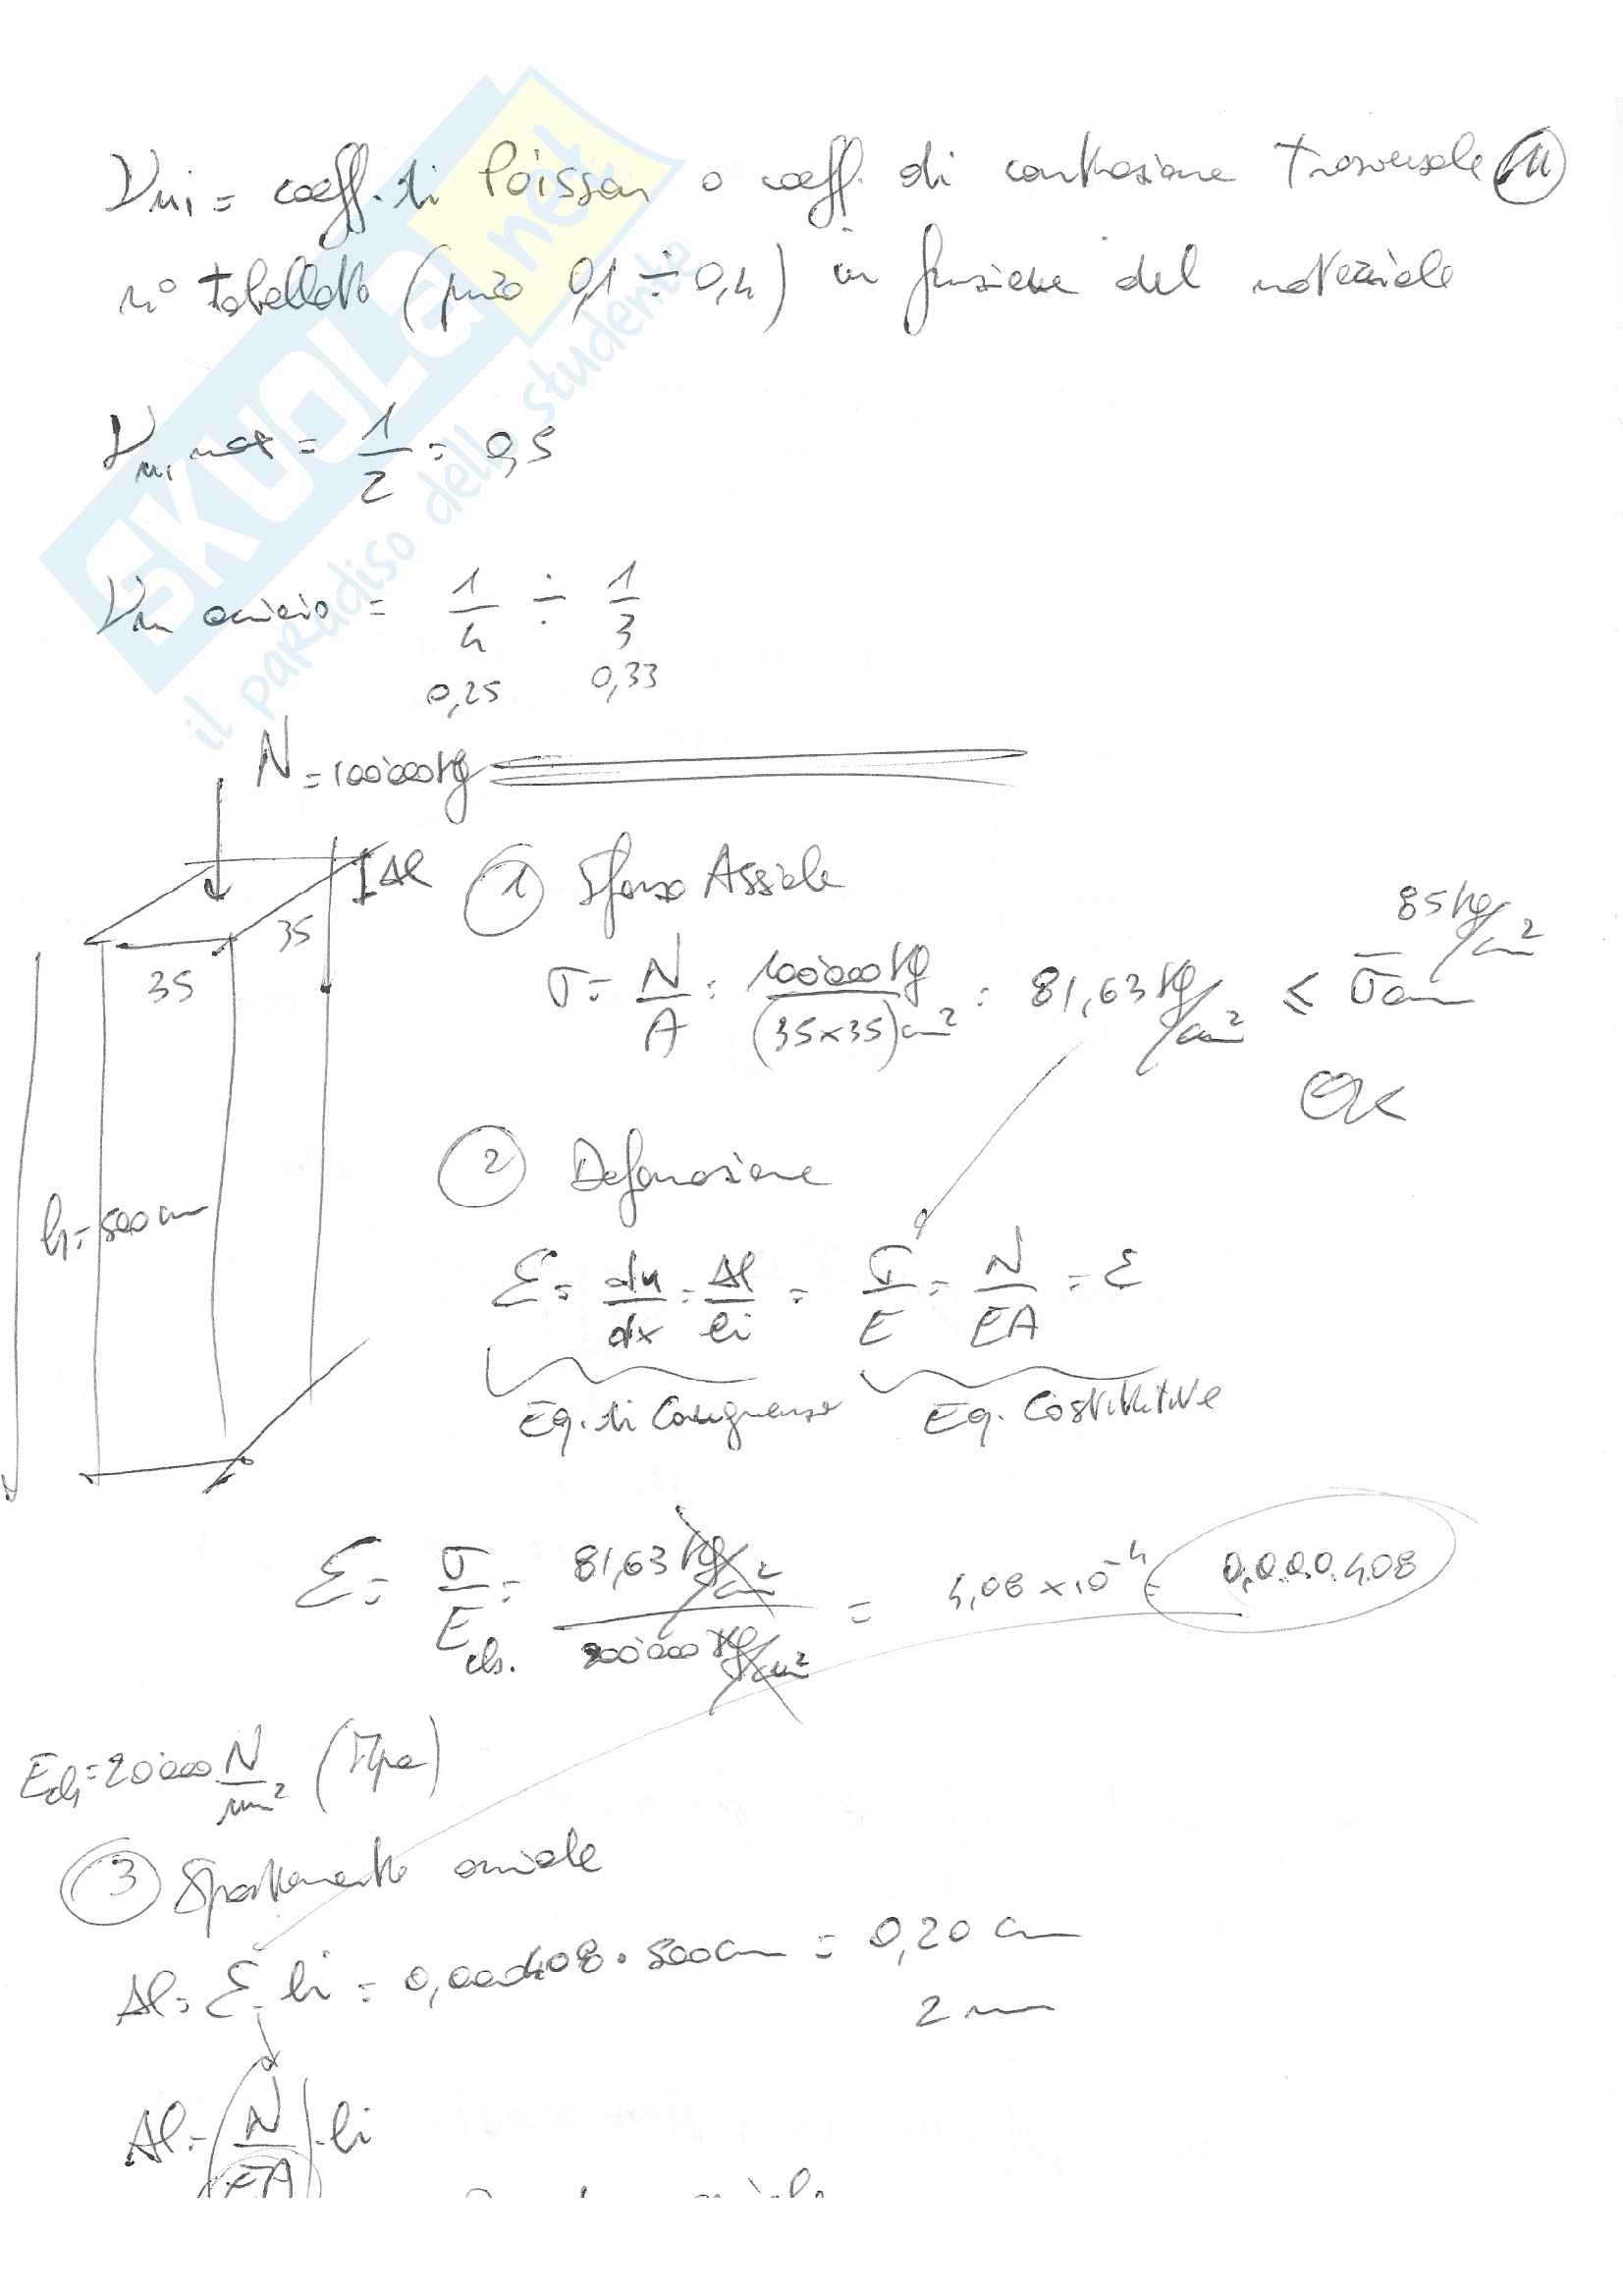 ν ni = coeff. di Poisson o coeff. di contrazione trasversale
n° tabellato (puro 0,1 ÷ 0,4) in funzione del materiale
ν ni max = 1/2 = 0,5
ν ni acciaio = 1/4 ÷ 1/3
0,25 0,33
SKUOLA.net
il paradiso dello studente
N = 100'000 kg
Δl
35
35
h = 500 cm
① Sforzo Assiale
σ = N/A = 100'000 kg/(35x35) cm² = 81,63 kg/cm² ≤ σ̄am
85 kg/cm²
OK
② Deformazione
Ɛ = du/dx = Δl/li = σ/E = N/EA = ε
Eq. di Congruenza Eq. Costitutive
Ɛ = σ/Ecls. = 81,63 kg/cm² / 200'000 kg/cm² = 4,08 x 10⁻⁴ = 0,000408
Ecls = 20'000 N/mm² (Mpa)
③ Spostamento assiale
Δl = Ɛ · li = 0,000408 · 500 cm = 0,20 cm
2 mm
Δl = (N/EA) · li